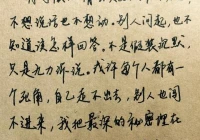 不想说话也不想动,别人问起,也不
知道该怎样回答,不是假装沉默,
只是无力诉说。或许每个人都有一
个死角,自己走不出去,别人也闯
不进来,我把最深的秘密埋在